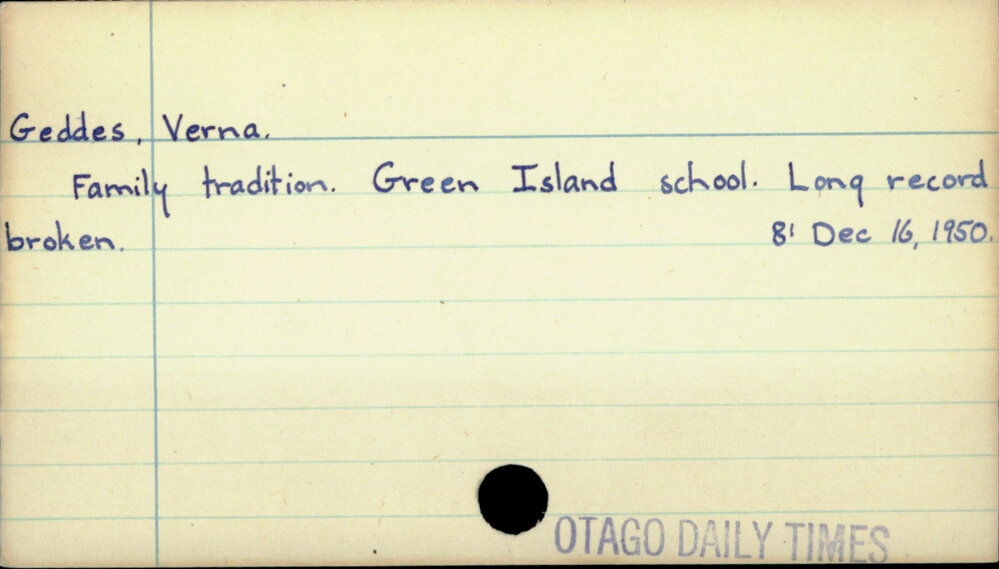 Geddes, Verna.
Family tradition. Green Island school. Long record
broken. 8' Dec 16, 1950.
OTAGO DAILY TIMES